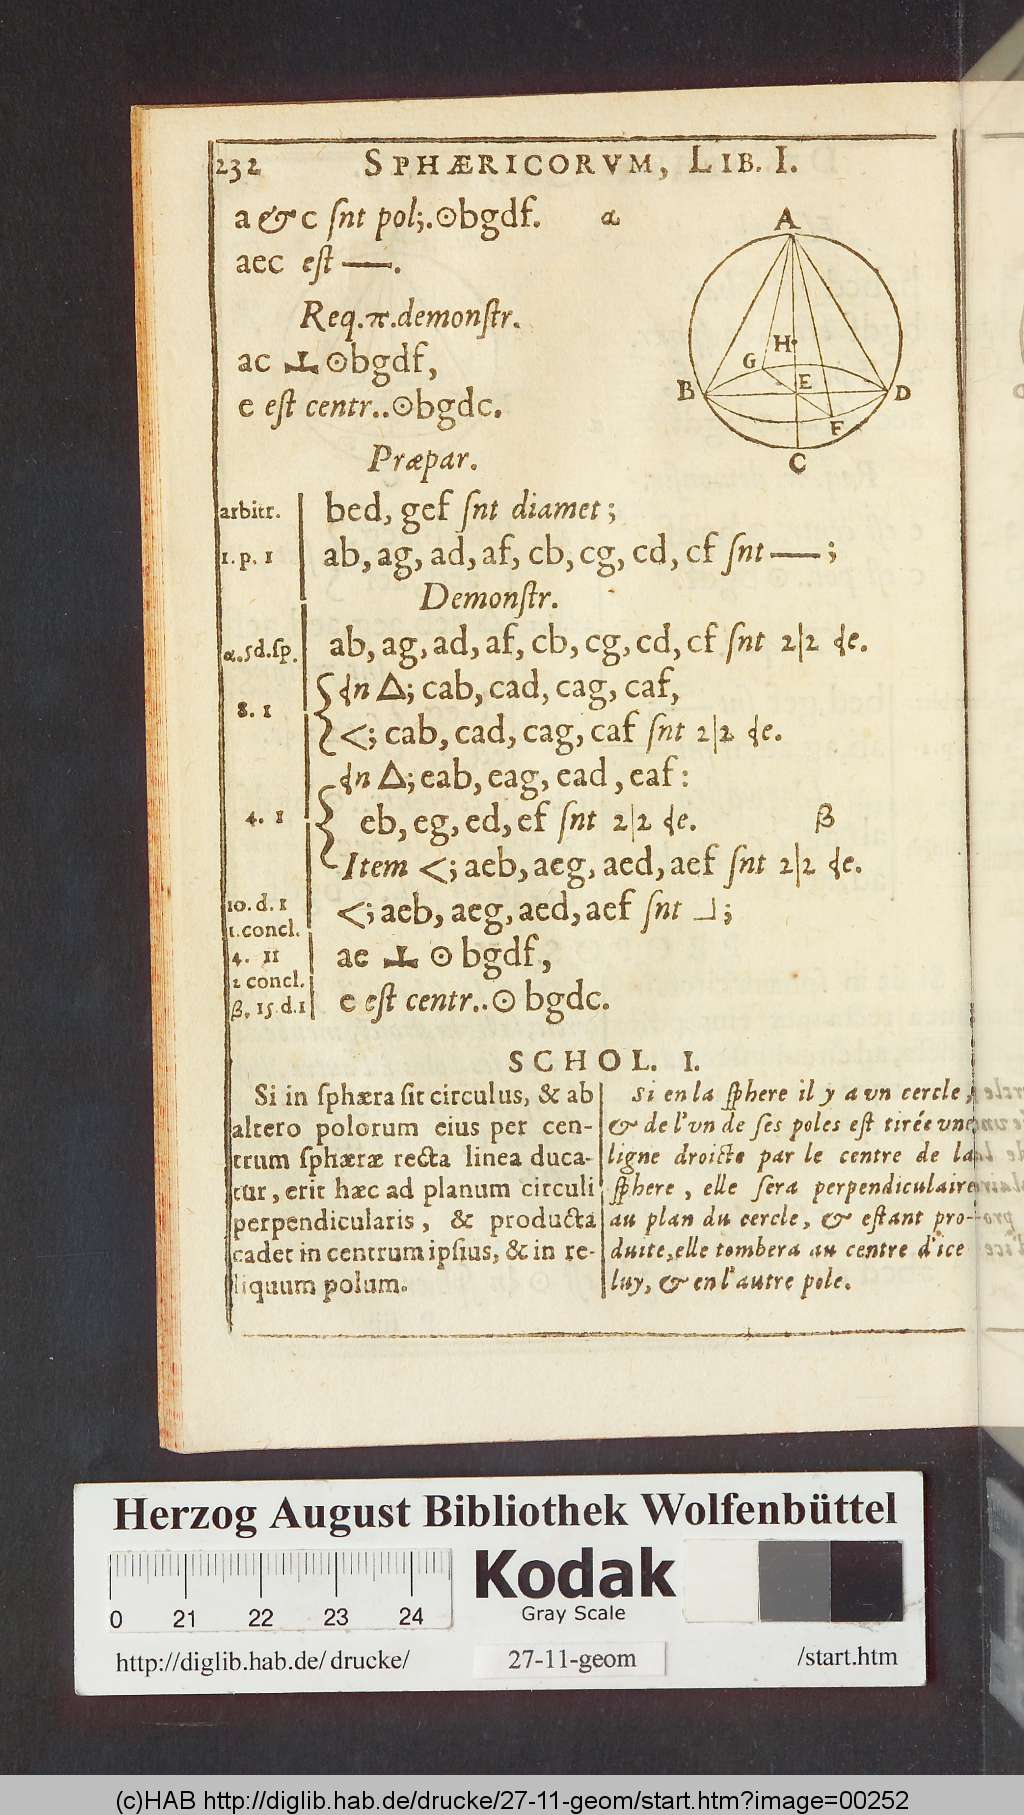 232 SPHÆRICORVM, LIB. I.
a & c ſnt pol;. ⊙bgdf. α
aec eſt —.
Req. π. demonſtr.
ac ⊥ ⊙bgdf,
e eſt centr.. ⊙bgdc.
A
H
G
B
E
D
F
C
Præpar.
arbitr. bed, gef ſnt diamet;
1. p. 1 ab, ag, ad, af, cb, cg, cd, cf ſnt — ;
Demonſtr.
α. 5 d. ſp. ab, ag, ad, af, cb, cg, cd, cf ſnt 2|2 de.
8. 1 dn Δ; cab, cad, cag, caf,
<; cab, cad, cag, caf ſnt 2|2 de.
dn Δ; eab, eag, ead, eaf:
4. 1 eb, eg, ed, ef ſnt 2|2 de. β
Item <; aeb, aeg, aed, aef ſnt 2|2 de.
10. d. 1 <; aeb, aeg, aed, aef ſnt ⅃;
1. concl.
4. 11 ae ⊥ ⊙ bgdf,
2 concl.
β. 15. d. 1 e eſt centr.. ⊙ bgdc.
SCHOL. I.
Si in ſphæra ſit circulus, & ab
altero polorum eius per cen-
trum ſphæræ recta linea duca-
tur, erit hæc ad planum circuli
perpendicularis, & producta
cadet in centrum ipſius, & in re-
liquum polum.
Si en la ſphere il y a vn cercle,
& de l'vn de ſes poles eſt tirée vne
ligne droicte par le centre de la
ſphere, elle ſera perpendiculaire
au plan du cercle, & eſtant pro-
duite, elle tombera au centre d'ice
luy, & en l'autre pole.
Herzog August Bibliothek Wolfenbüttel
0 21 22 23 24
Kodak
Gray Scale
http://diglib.hab.de/ drucke/ 27-11-geom /start.htm
(c)HAB http://diglib.hab.de/drucke/27-11-geom/start.htm?image=00252